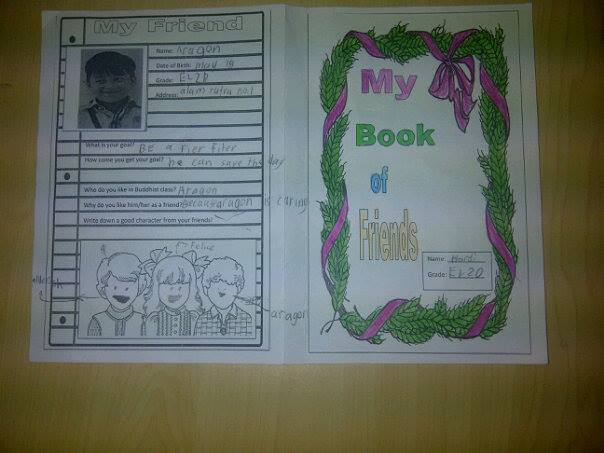 My Friend
Name: Aragon
Date of Birth: May 19
Grade: EL2D
Address: alam sutra no.1
What is your goal? BE a Fier Fiter
How come you get your goal? he can save the day
Who do you like in Buddhist class? Aragon
Why do you like him/her as a friend? Because aragon is caring
Write down a good character from your friends!
Felice
aragon
My
Book
of
Friends
Name: Hardi
Grade: EL2D